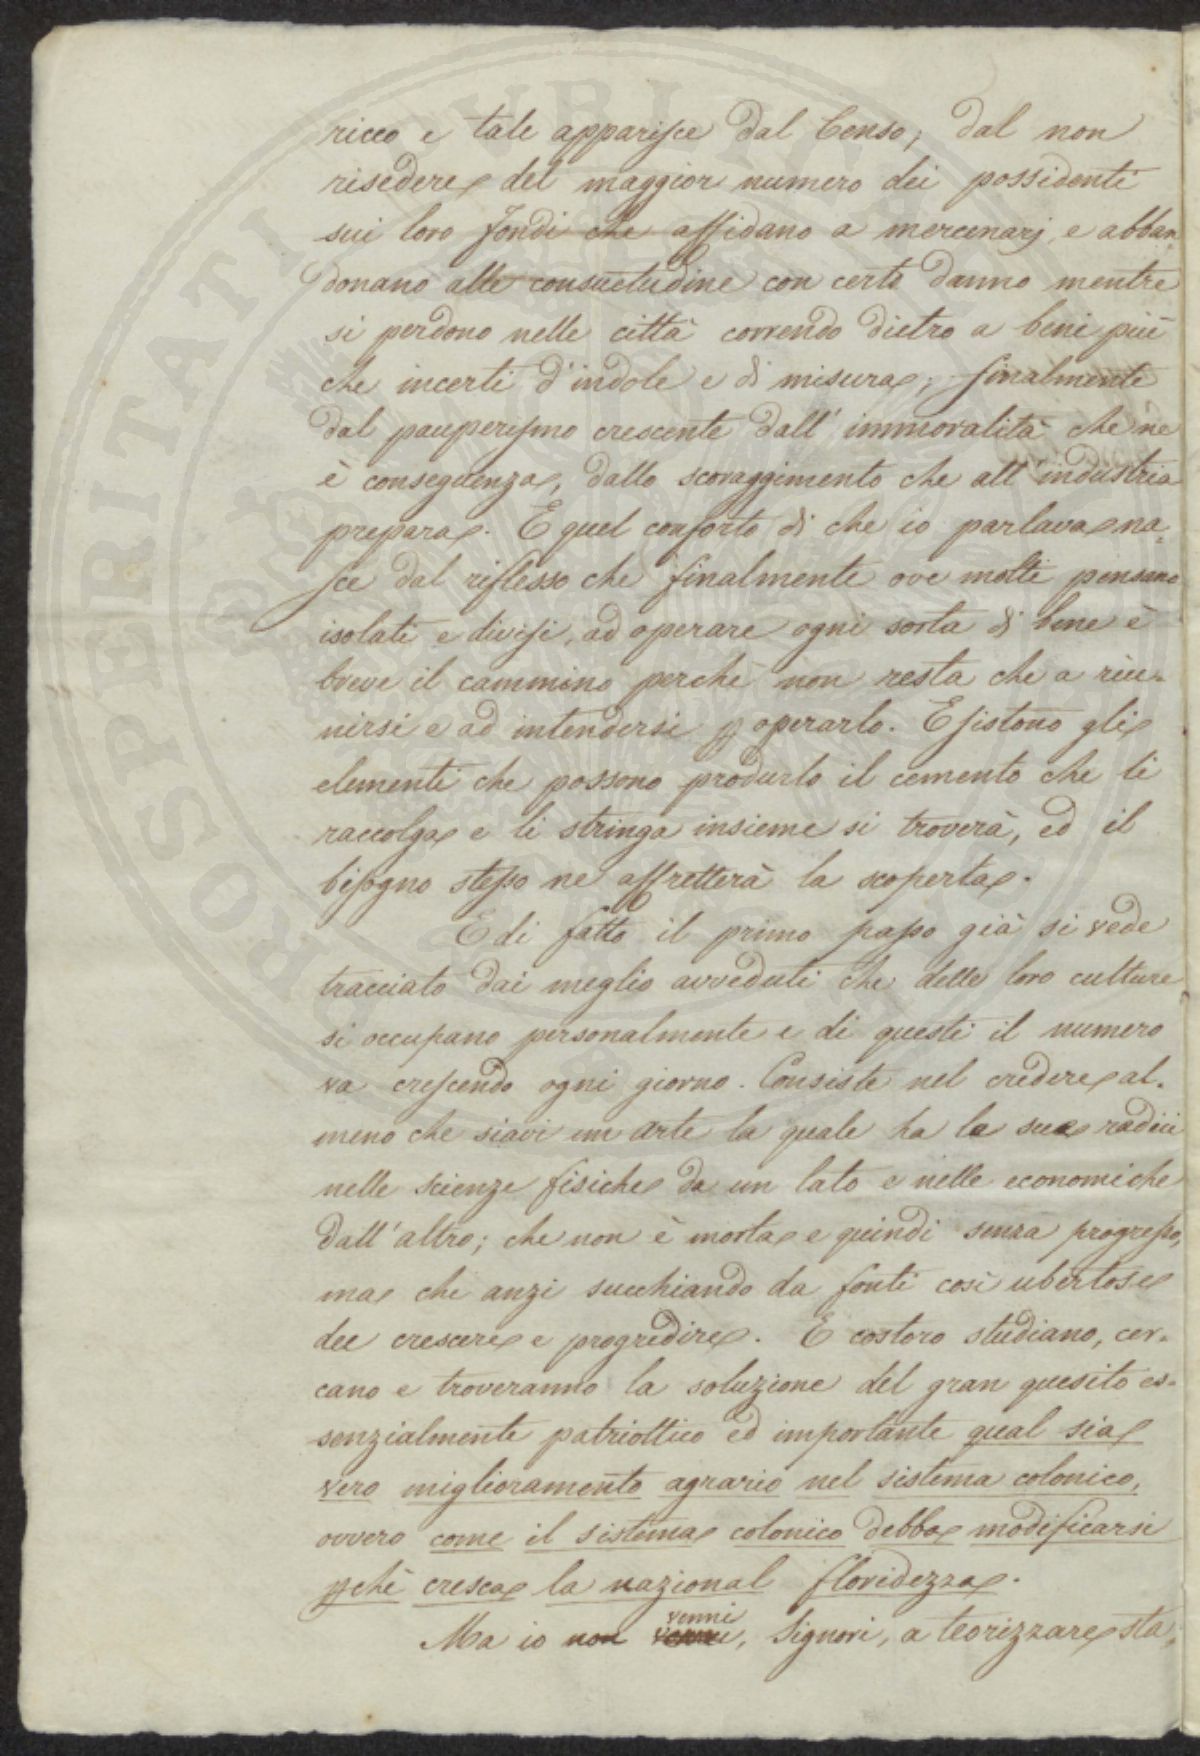 ricco e tale apparisce dal Censo; dal non
risedere del maggior numero dei possidenti
sui loro fondi che affidano a mercenarj, e abban
donano alle consuetudine con certo danno mentre
si perdono nelle città correndo dietro a beni più
che incerti d'indole e di misura; finalmente
dal pauperismo crescente dall'immoralità che ne
è conseguenza, dallo scoraggimento che all'industria
prepara. E quel conforto di che io parlava na-
sce dal riflesso che finalmente ove molti pensano
isolati e divisi, ad operare ogni sorta di bene è
breve il cammino perchè non resta che a riu-
nirsi e ad intendersi p operarlo. Esistono gli
elementi che possono produrlo il cemento che li
raccolga e li stringa insieme si troverà, ed il
bisogno stesso ne affretterà la scoperta.
E di fatto il primo passo già si vede
tracciato dai meglio avveduti che delle loro culture
si occupano personalmente e di questi il numero
va crescendo ogni giorno. Consiste nel credere al-
meno che siavi un arte la quale ha le sue radici
nelle scienze fisiche da un lato e nelle economiche
dall'altro; che non è morta e quindi senza progresso,
ma che anzi succhiando da fonti così ubertose
dee crescere e progredire. E costoro studiano, cer-
cano e troveranno la soluzione del gran quesito es-
senzialmente patriottico ed importante qual sia
vero miglioramento agrario nel sistema colonico,
ovvero come il sistema colonico debba modificarsi
pchè cresca la nazional floridezza.
Ma io non venni, Signori, a teorizzare sta,